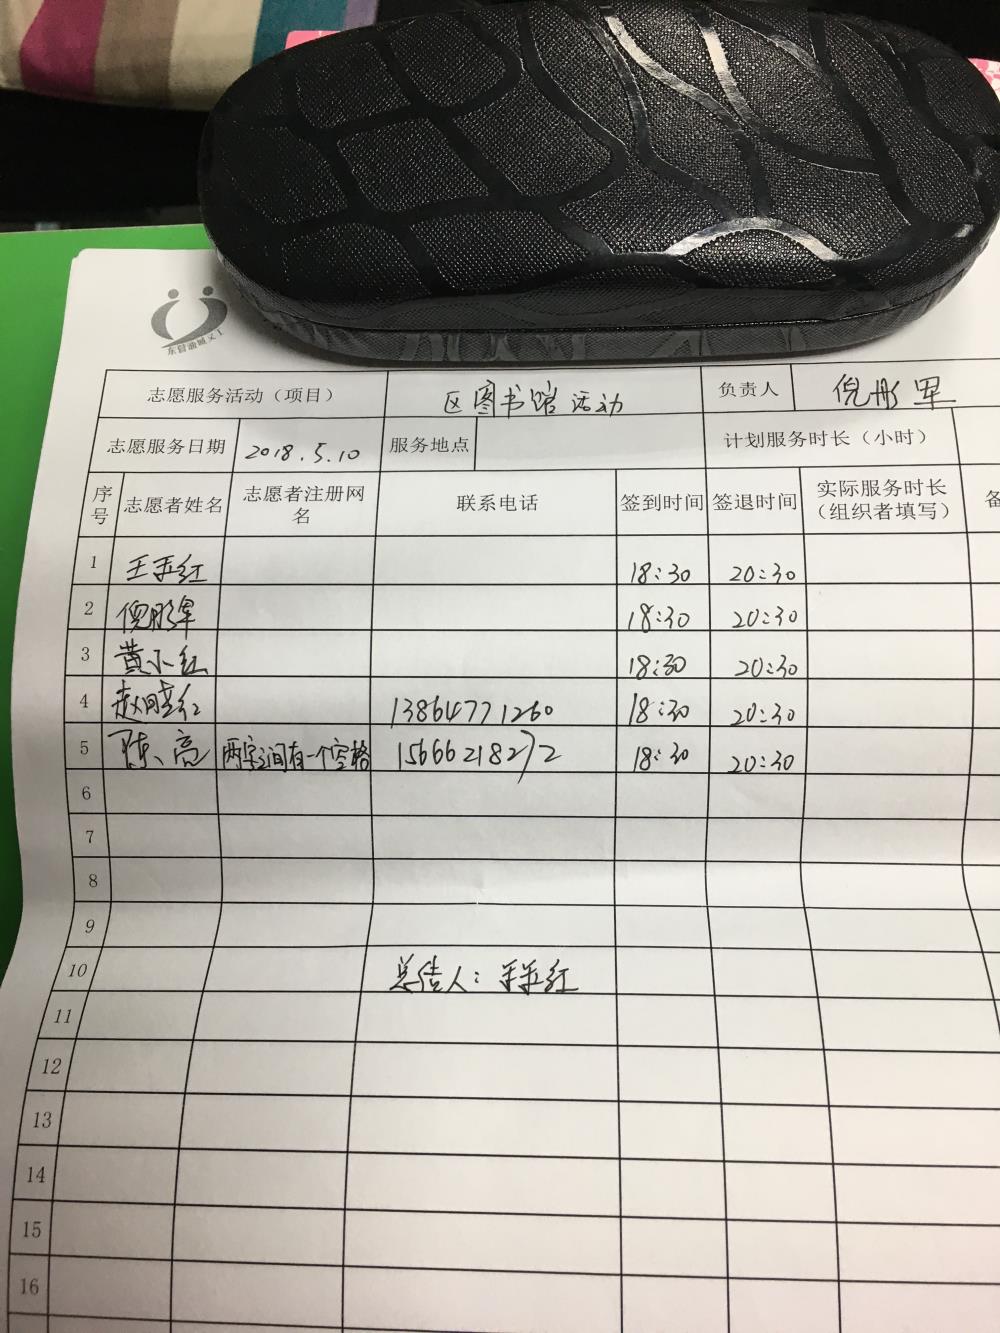 东营油城义工
志愿服务活动（项目） 区图书馆活动 负责人 倪彤军
志愿服务日期 2018.5.10 服务地点 计划服务时长（小时）
序号 志愿者姓名 志愿者注册网名 联系电话 签到时间 签退时间 实际服务时长（组织者填写） 备
1 王玉红 18:30 20:30
2 倪彤军 18:30 20:30
3 黄小红 18:30 20:30
4 赵 红 13864771260 18:30 20:30
5 陈、亮 两字之间有一个空格 15666218272 18:30 20:30
6
7
8
9
10 人：王玉红
11
12
13
14
15
16